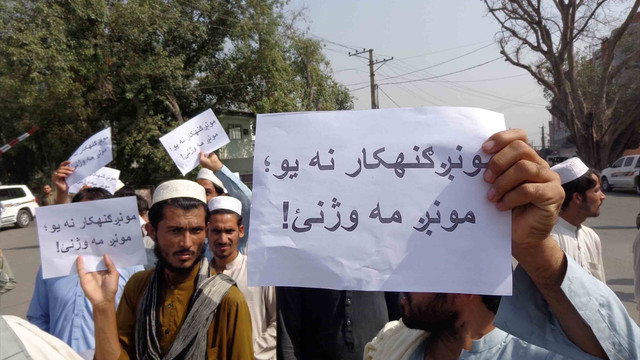 مونږ ګنهکار نه یو؛
مونږ مه وژنئ!
مونږ ګنهکار نه یو؛
مونږ مه وژنئ!
مونږ ګنهکار نه یو؛
مونږ مه وژنئ!
مونږ ګنهکار نه یو؛
مونږ مه وژنئ!